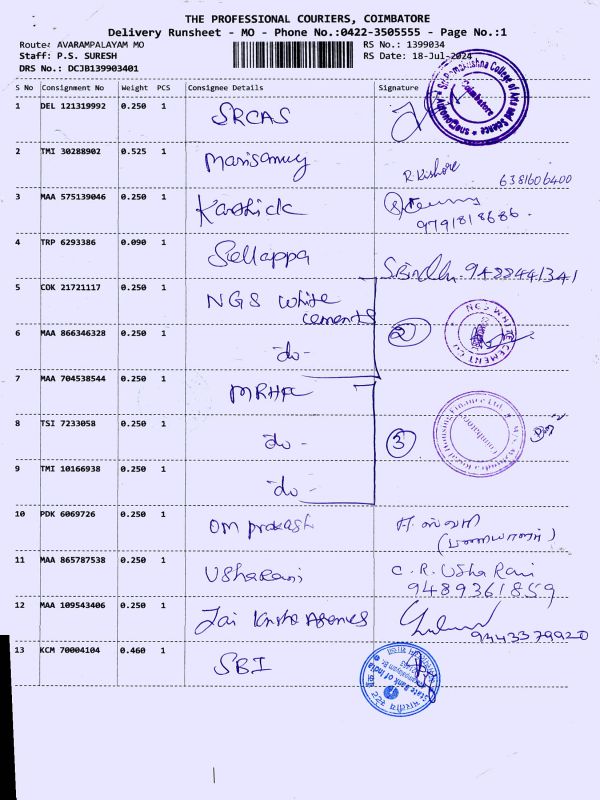 THE PROFESSIONAL COURIERS, COIMBATORE
Delivery Runsheet - MO - Phone No.:0422-3505555 - Page No.:1
Route: AVARAMPALAYAM MO
RS No.: 1399034
Staff: P.S. SURESH
RS Date: 18-Jul-2024
DRS No.: DCJB139903401
S No Consignment No Weight PCS Consignee Details Signature
1 DEL 121319992 0.250 1 SRCAS
Sri Ramakrishna College of Arts and Science Coimbatore
2 TMI 30288902 0.525 1
R. Kishore 6381606400
3 MAA 575139046 0.250 1 Karthick
9791818686.
4 TRP 6293386 0.090 1 Sellappa
9488441341
5 COK 21721117 0.250 1 NGS white cements
6 MAA 866346328 0.250 1 -do-
2 NGS WHITE CEMENT CO
7 MAA 704538544 0.250 1
8 TSI 7233058 0.250 1 -do-
3 Rural Housing Finance Ltd. Coimbatore
9 TMI 10166938 0.250 1 -do-
10 PDK 6069726 0.250 1 Om prakash
11 MAA 865787538 0.250 1 UshaRani
C. R. Usha Rani
9489361859
12 MAA 109543406 0.250 1 Jai
9443379920
13 KCM 70004104 0.460 1 SBI
State Bank of India
भारतीय स्टेट